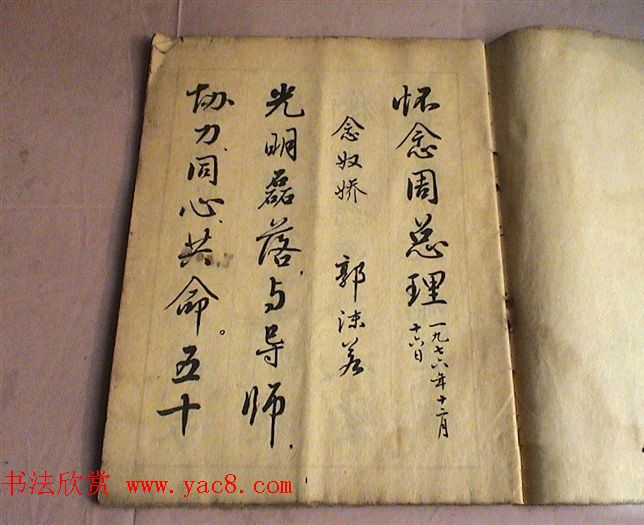 怀念周总理 一九七六年十二月
十六日
念奴娇 郭沫若
光明磊落，与导师，
协力、同心、共命。五十
书法欣赏 www.yac8.com